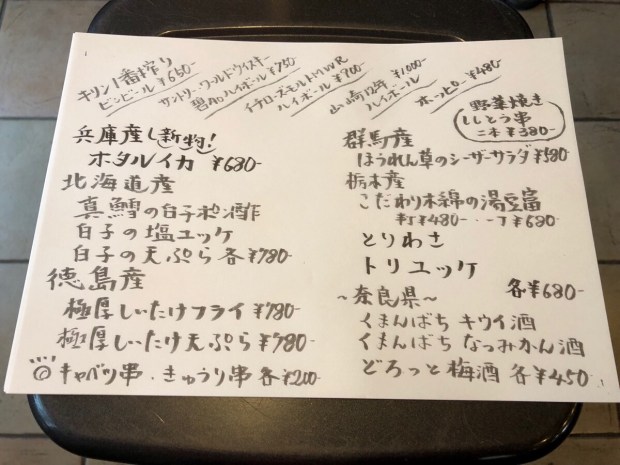 キリン1番搾り
ビンビール ¥650-
サントリーワールドウイスキー
碧Aoハイボール ¥750
イチローズモルトMWR
ハイボール ¥900
山崎12年 ¥1000-
ハイボール
ホッピー ¥480
野菜焼き
ししとう串
二本 ¥380-
兵庫産 新物!
ホタルイカ ¥680-
北海道産
真鱈の白子ポン酢
白子の塩ユッケ
白子の天ぷら 各¥780-
徳島産
極厚しいたけフライ ¥780-
極厚しいたけ天ぷら ¥780-
キャベツ串・きゅうり串 各¥200-
群馬産
ほうれん草のシーザーサラダ ¥580
栃木産
こだわり木綿の湯豆富
半丁¥480-・一丁¥680-
とりわさ
トリユッケ
各¥680-
~奈良県~
くまんばち キウイ酒
くまんばち なつみかん酒
どろっと梅酒 各¥450-